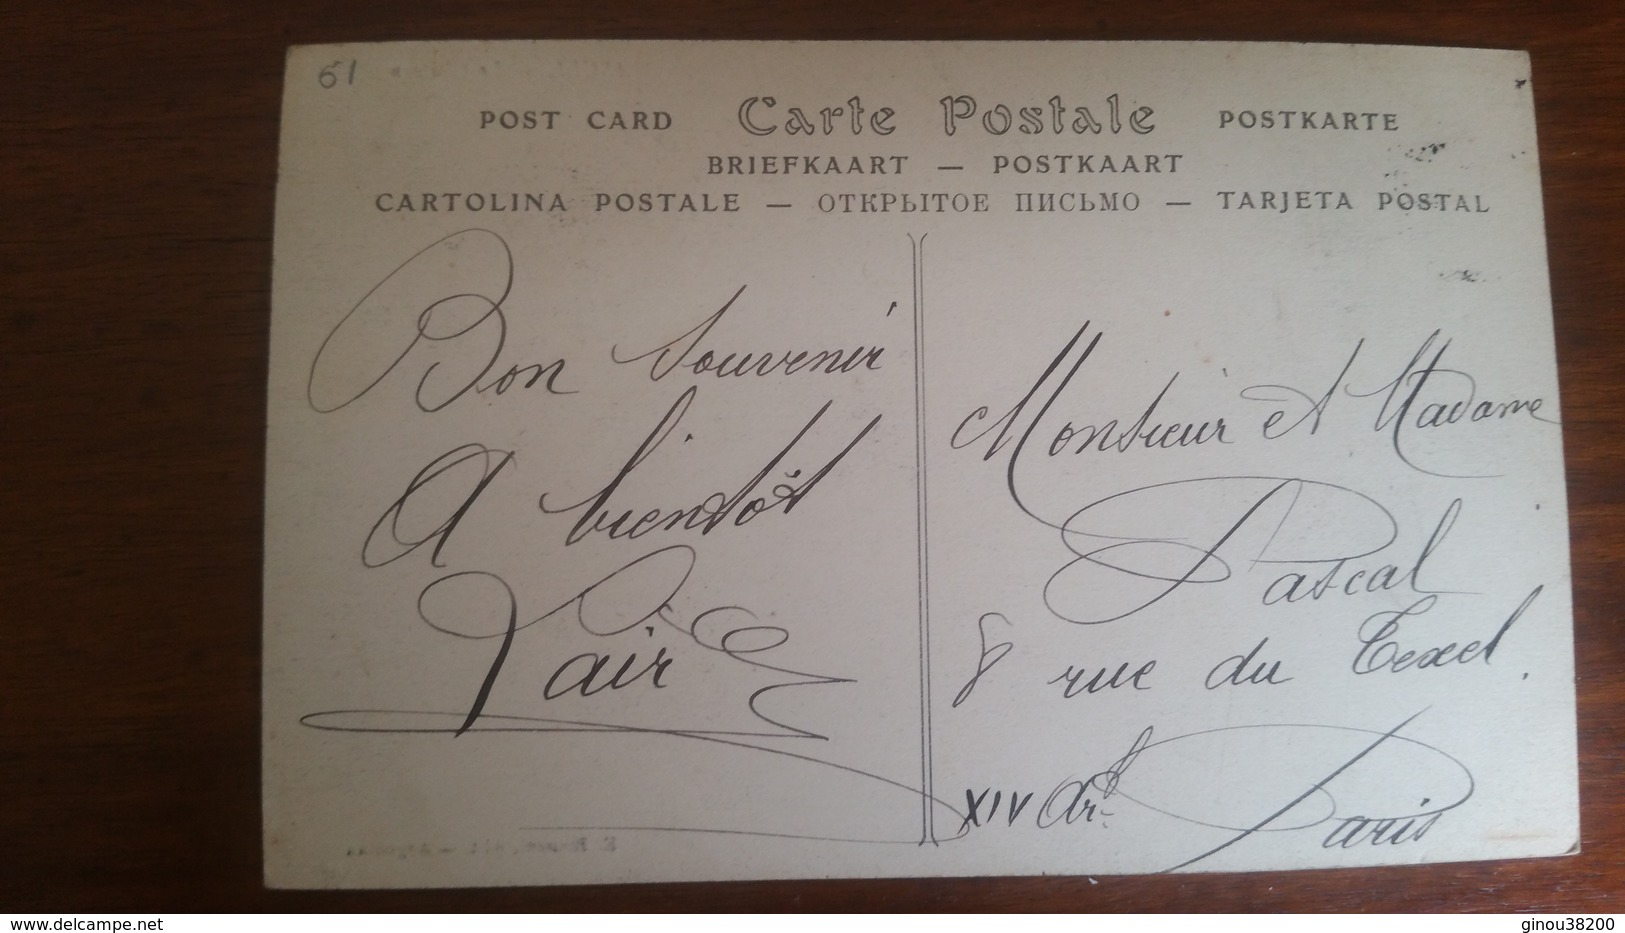 61
POST CARD Carte Postale POSTKARTE
BRIEFKAART — POSTKAART
CARTOLINA POSTALE — ОТКРЫТОЕ ПИСЬМО — TARJETA POSTAL
Bon souvenir
A bientôt
Vair
Monsieur et Madame
Pascal
8 rue du Texel.
XIV Art
Paris
www.delcampe.net
ginou38200